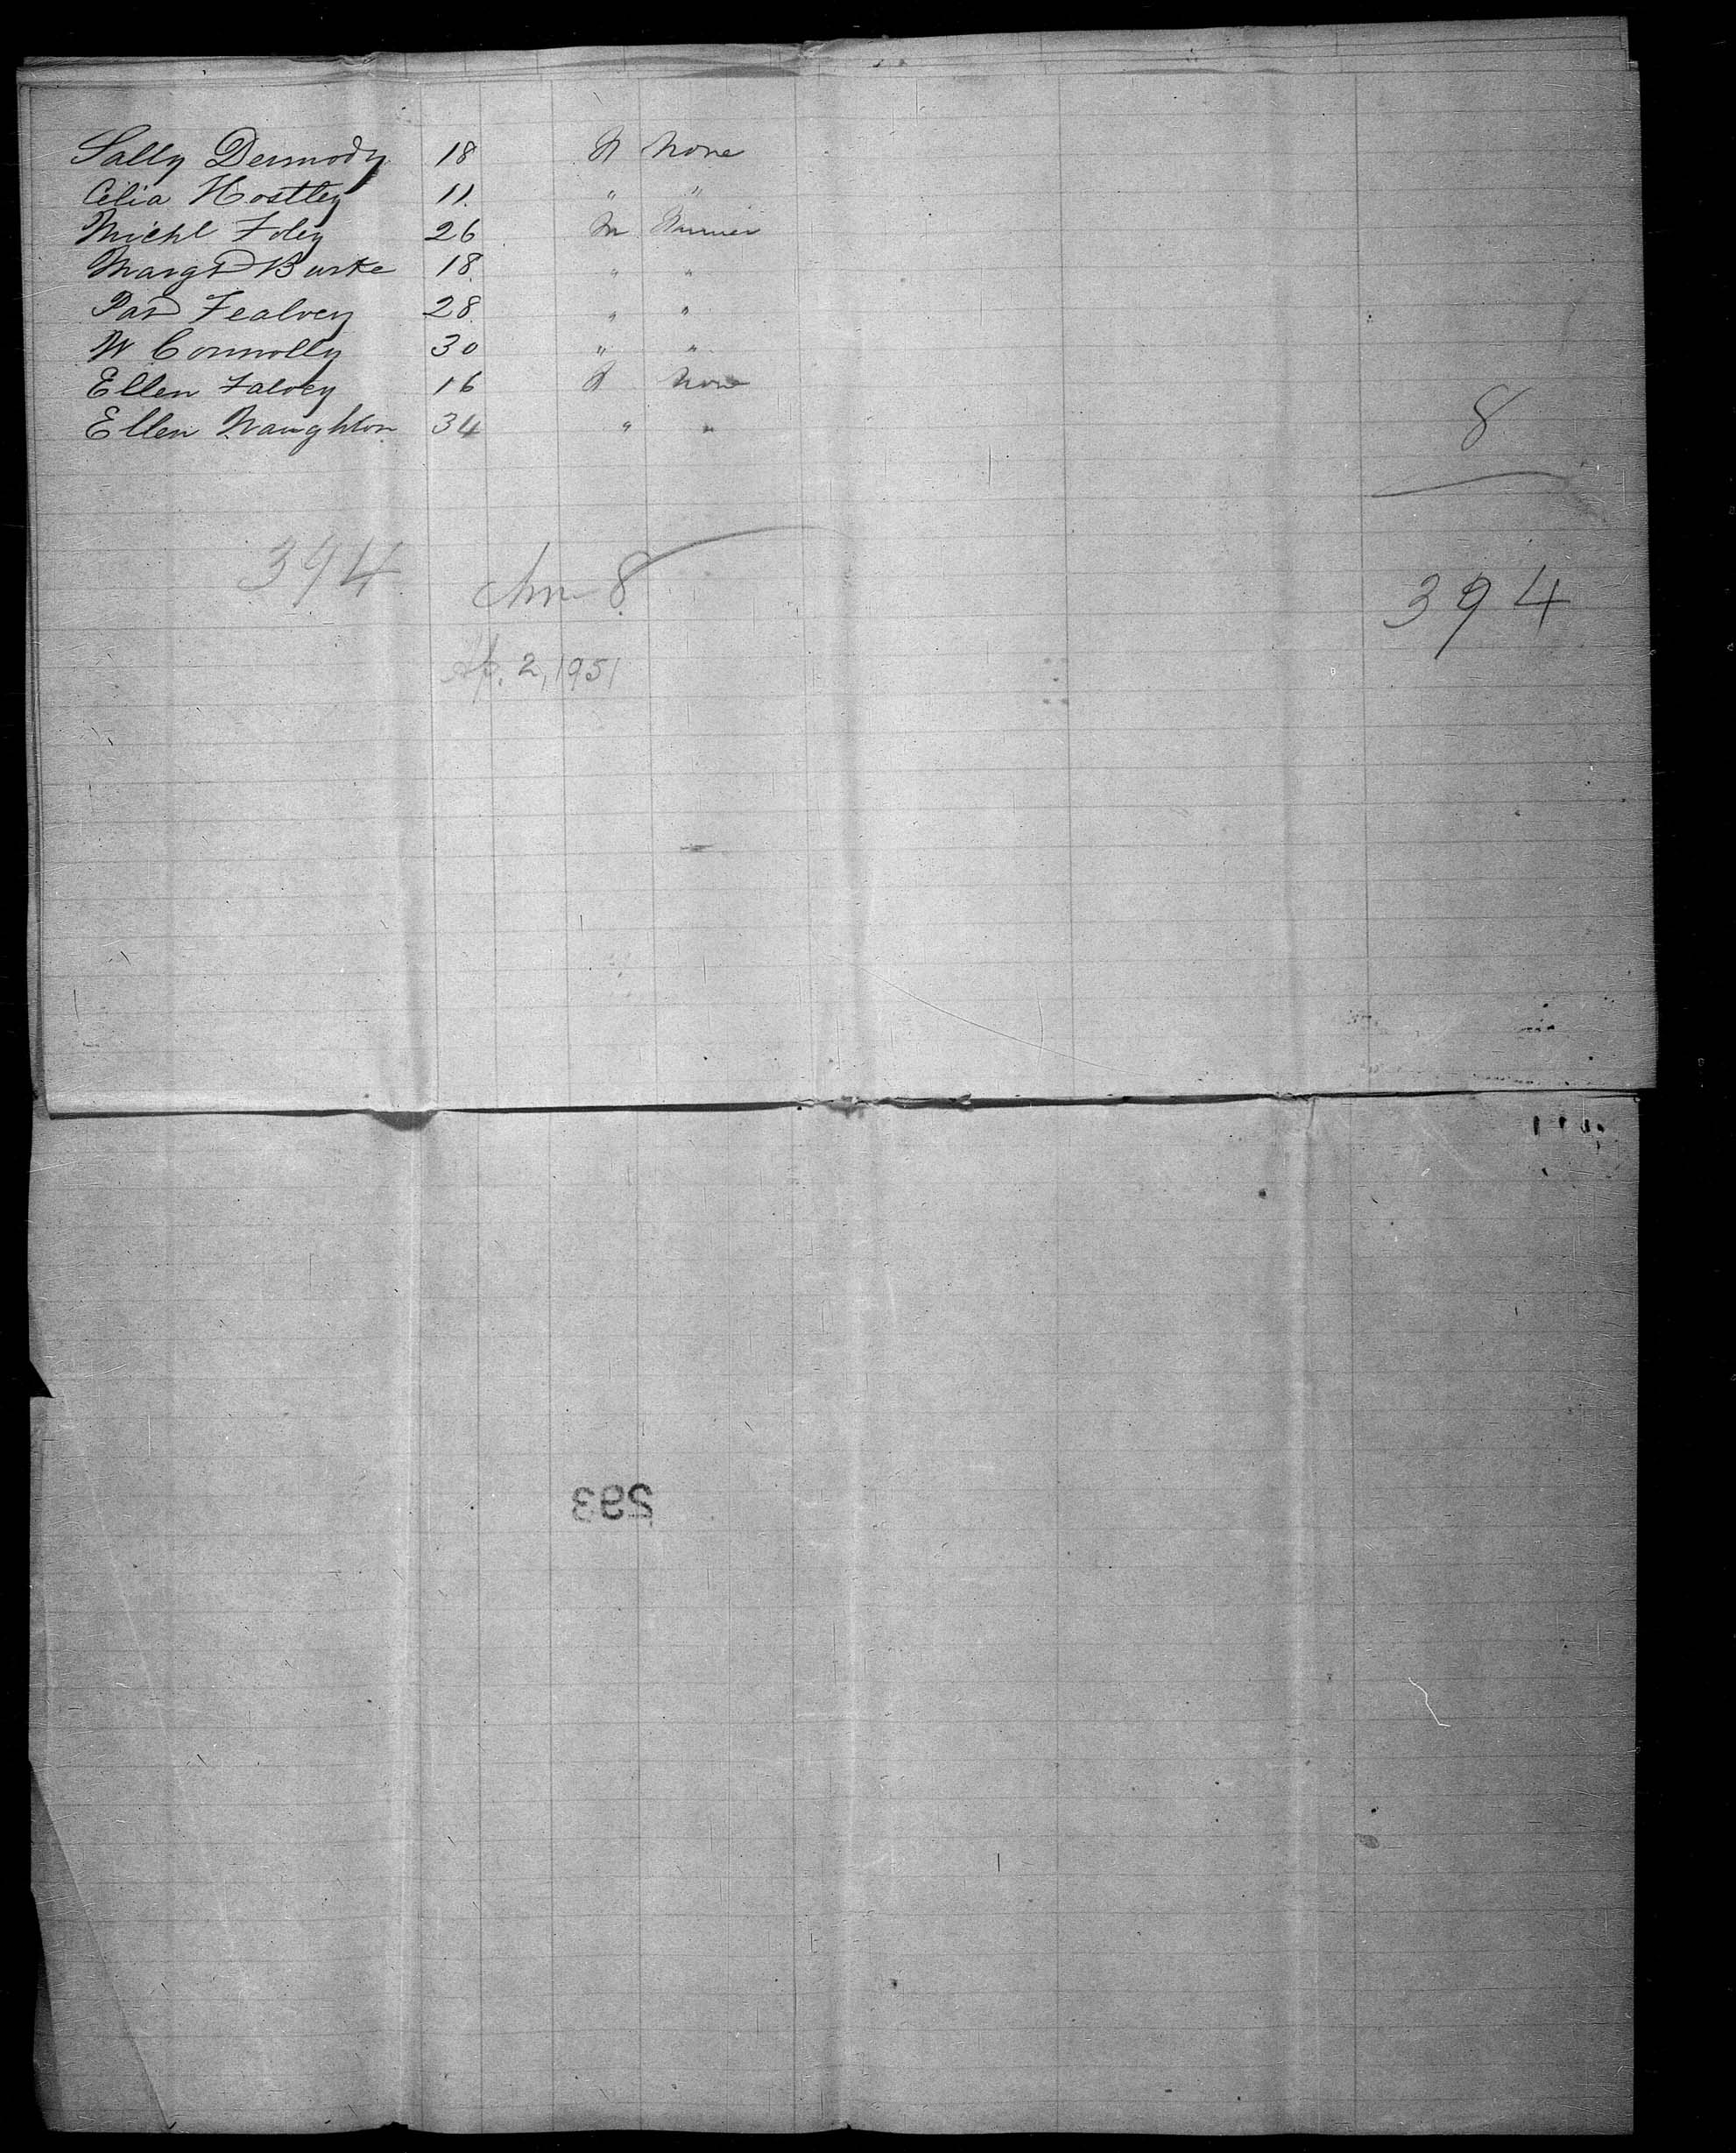 Sally Dermody 18 F None
Celia Hostley 11 " "
Michl Foley 26 M
Margt Burke 18 " "
Pat Fealvey 28 " "
W Connolly 30 " "
Ellen Falvey 16 F None
Ellen Naughton 34 " "
8
394
8
394
Ap. 2, 1951
293